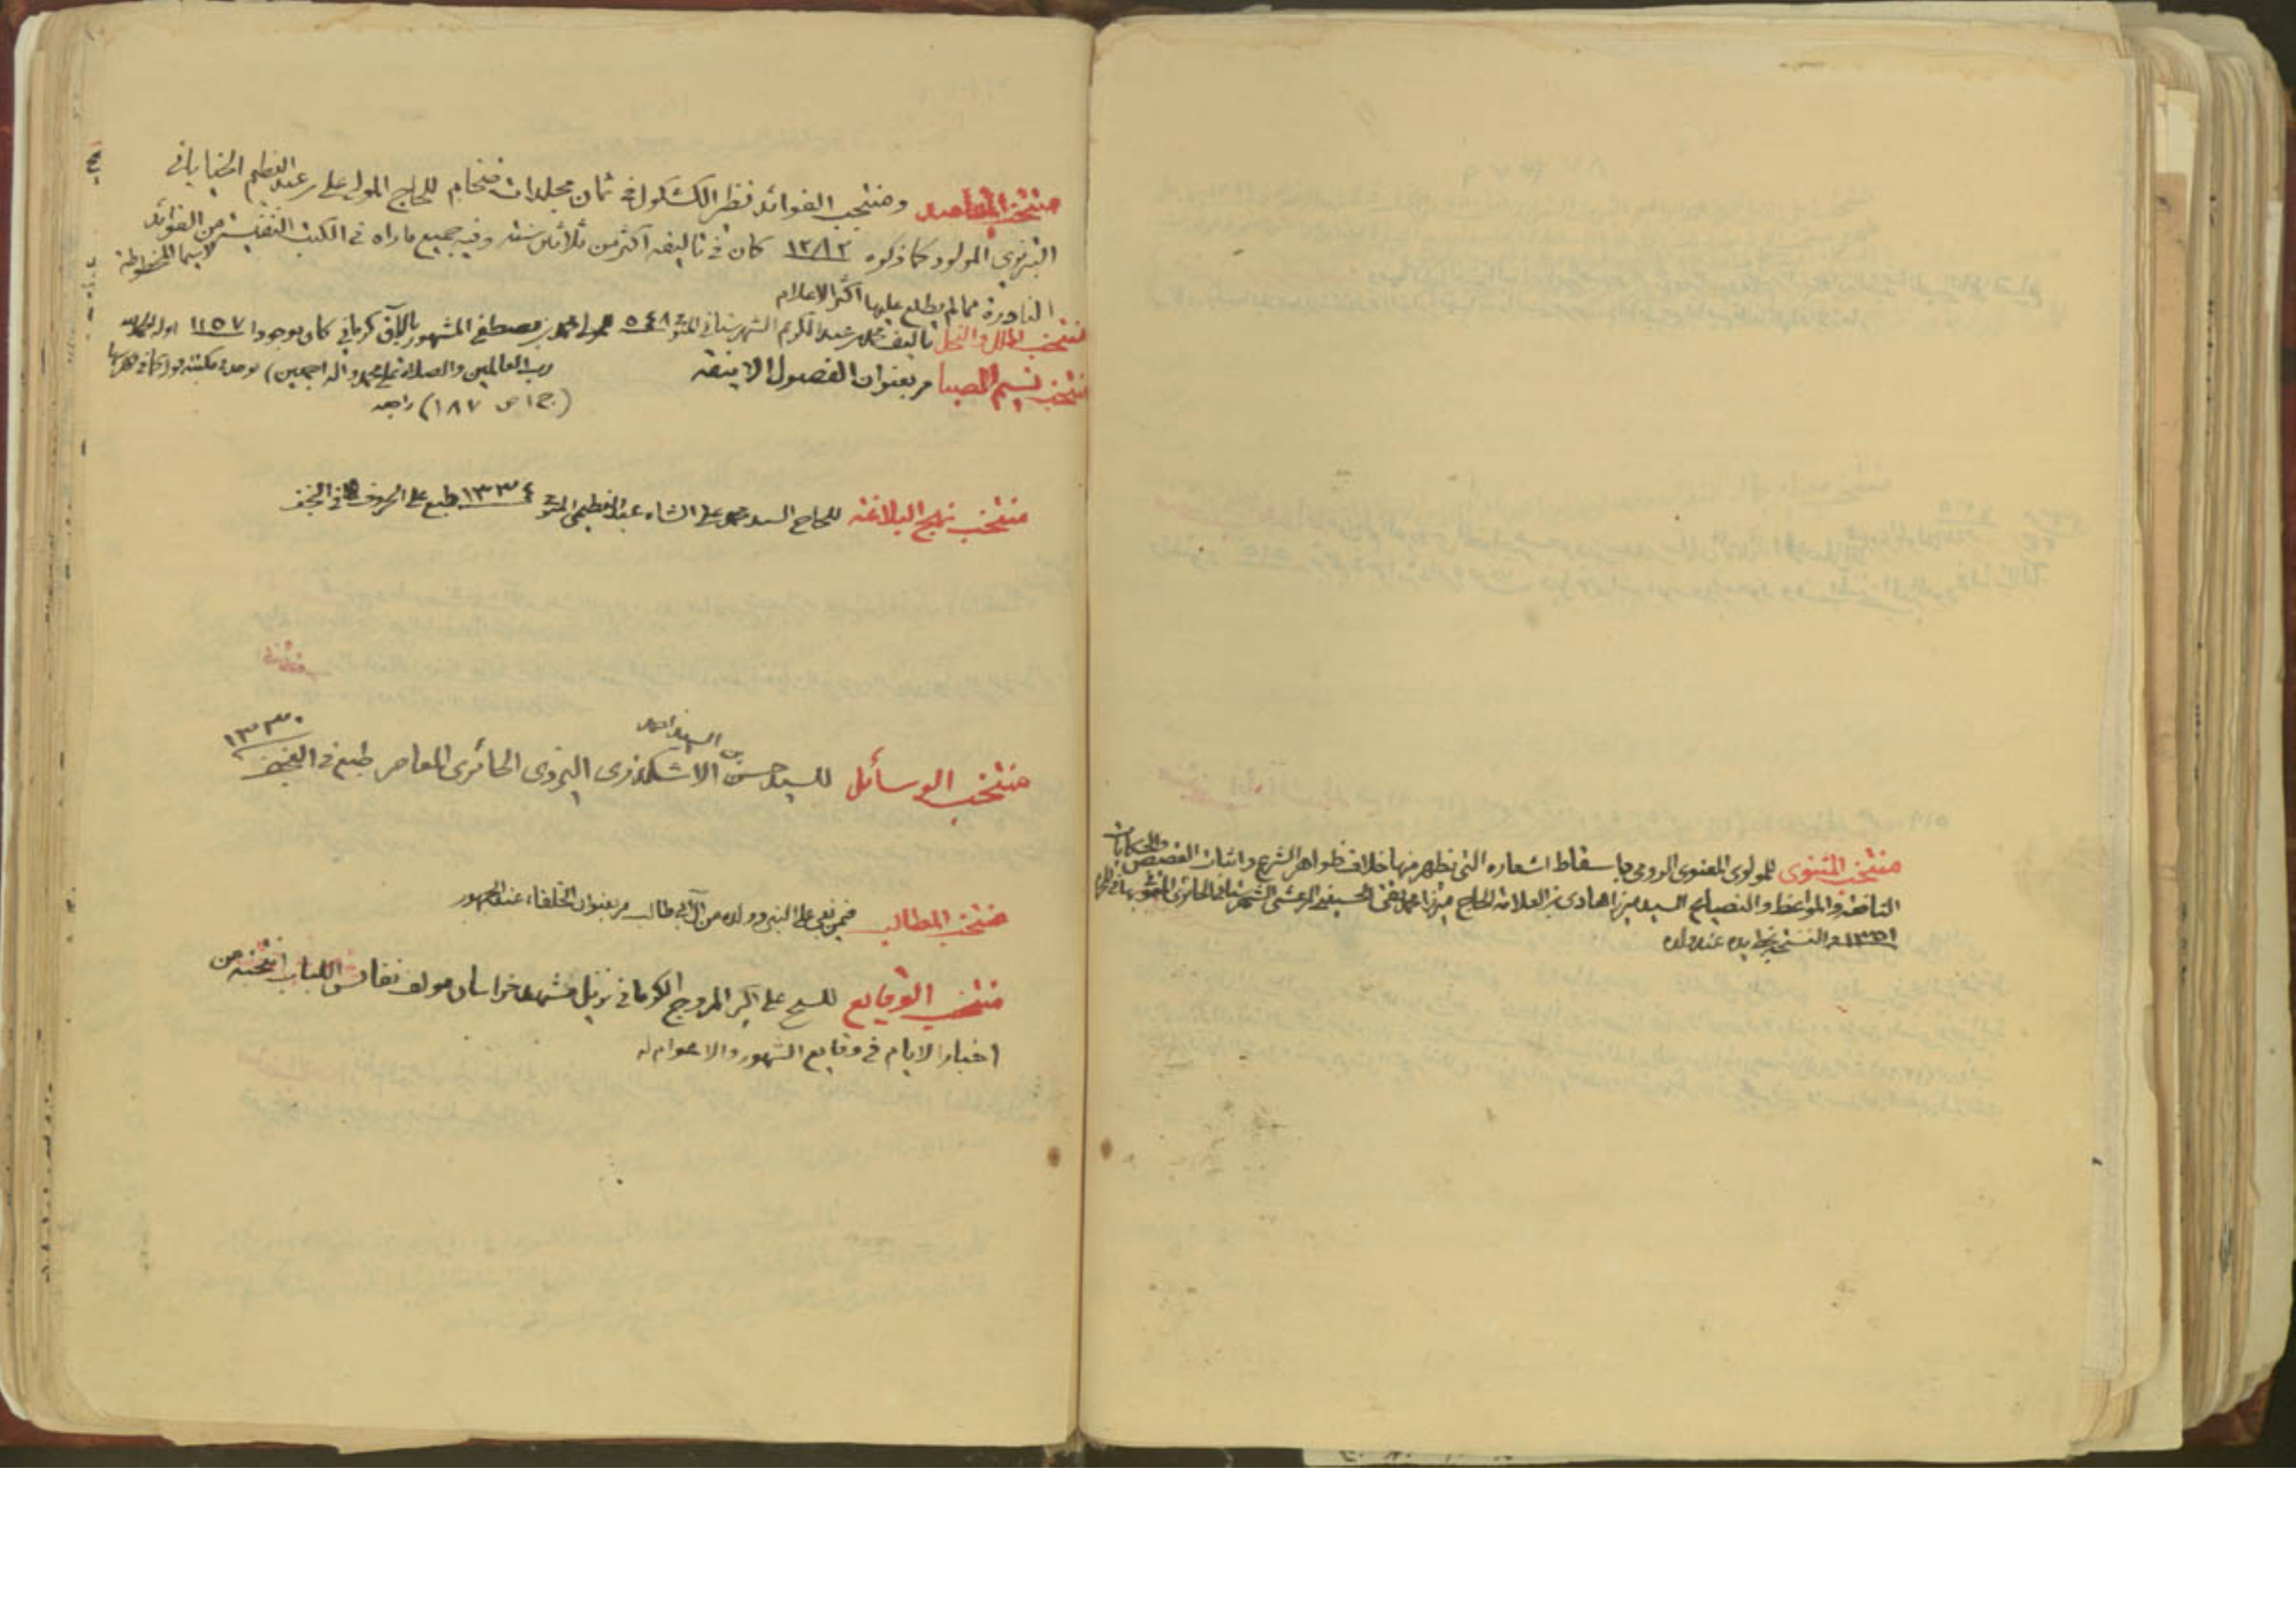 منتخب المثنوى للمولوى المعنوى الرومى باسقاط اشعاره التى تظهر منها خلاف ظواهر الشرع واثبات القصص والحكايات
النافعة والمواعظ والنصايح السيد ميرزا هادى بن العلامة الحاج ميرزا محمد تقى الحسينى المرعشى الشهرستانى الحائرى المتوفى بها
١٣٥١ والنسخة بخط يده عند ولده
منتخب المقاصد ومنتخب الفوائد نظير الكشكول فى ثمان مجلدات ضخام للحاج المولى على بن عبد العظيم الخيابانى
التبريزى المولود كما ذكره ١٢٨٢ كان فى تاليفه اكثر من ثلاثين سنة وفيه جميع ماراه فى الكتب النفيسة من الفوائد لاسيما المخطوطة
النادرة مما لم يطلع عليها اكثر الاعلام
منتخب الملل والنحل تاليف محمد بن عبد الكريم الشهرستانى المتوفى ٥٤٨ محمد بن مصطفى المشهور كرمانى كان موجودا ١١٥٧ اوله الحمد لله
رب العالمين والصلاة على محمد واله اجمعين) يوجد فى مكتبة
(ج ١ ص ١٨٧) راجعه
منتخب نسيم الصبا مر بعنوان الفصول الانيقة
منتخب نهج البلاغة للحاج السيد محمد على الشاه عبد العظيمى المتوفى ١٣٣٤ طبع على الحروف فى النجف
منتخب الوسائل للسيد حسن بن السيد احمد الاشكذرى اليزدى الحائرى المعاصر طبع فى النجف ١٣٣٠
منتخب المطالب فيمن بغى على النبى وولده من آل ابى طالب مر بعنوان الخلفاء عند الجمهور
منتخب الوقايع للشيخ على اكبر المروج الكرمانى نزيل مشهد خراسان مولف نفائس اللباب انتخبه من
اخبار الايام فى وقايع الشهور والاعوام له